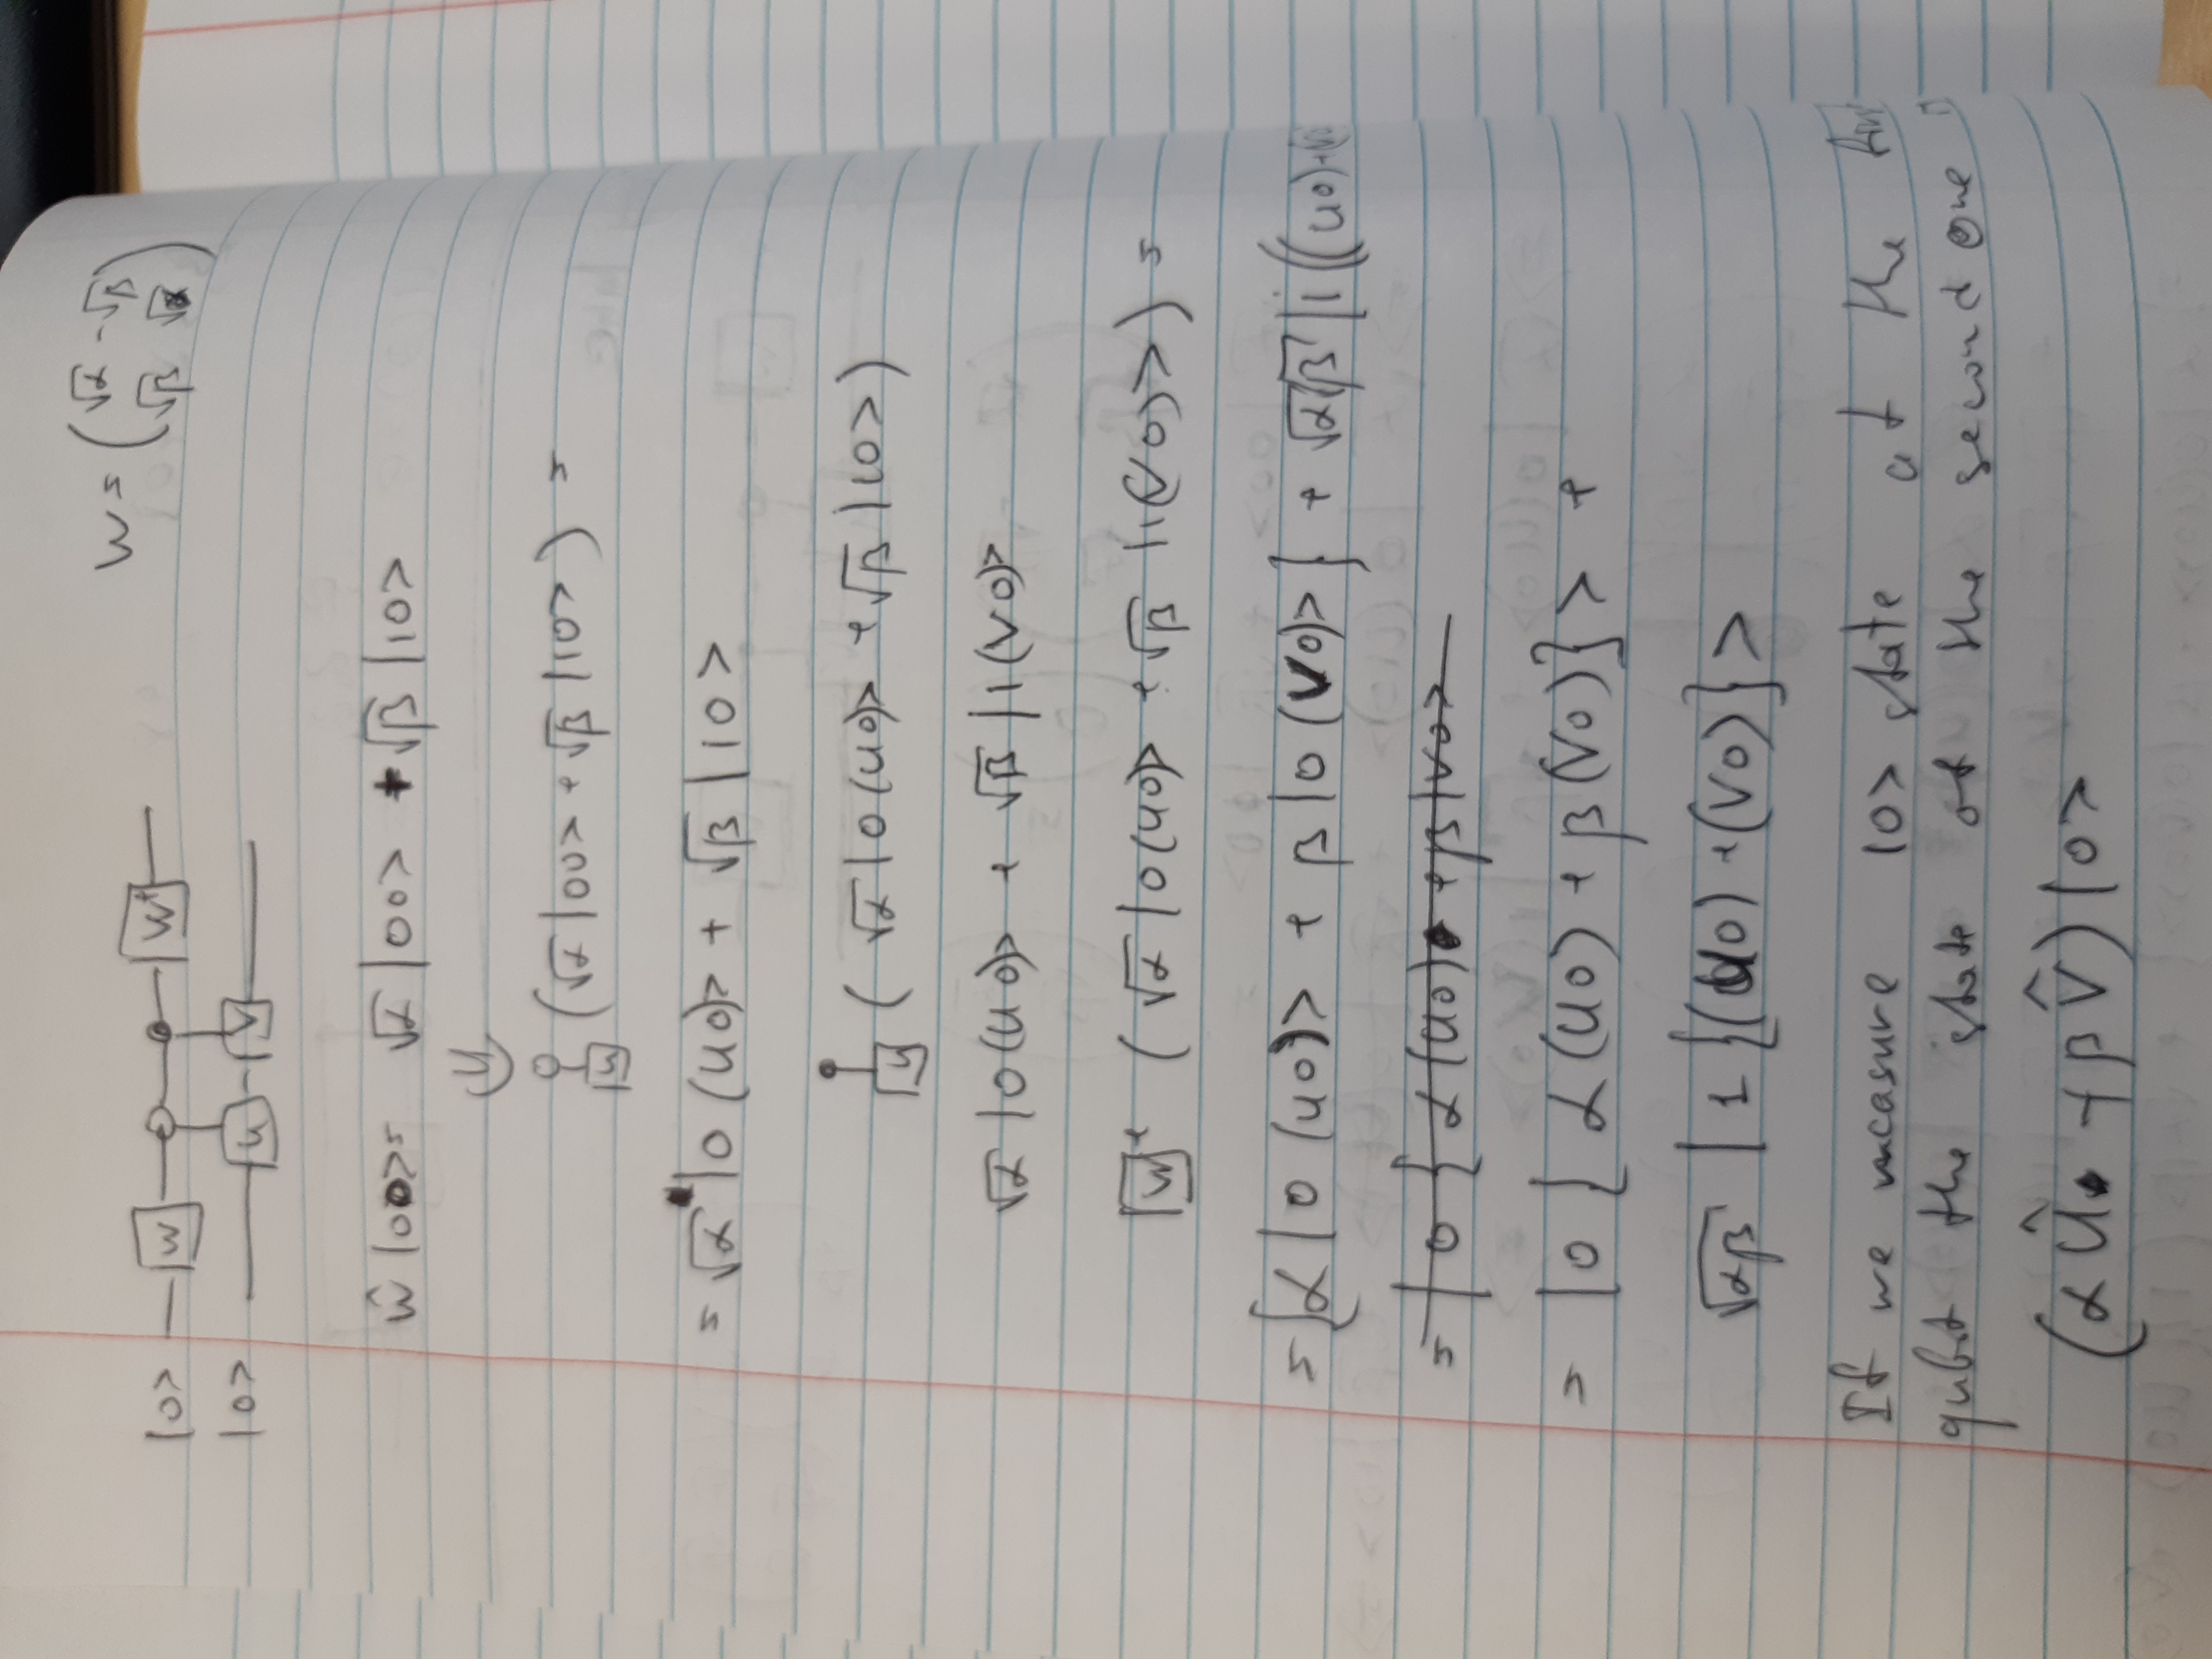 |0> W W† W = ( √α -√β
|0> U V √β √α )
Ŵ |00> = √α |00> + √β |10>
U
U (√α |00> + √β |10>) =
= √α |0 (U0)> + √β |10>
V ( √α |0 (U0)> + √β |10>)
√α |0(U0)> + √β |1(V0)>
W† ( √α |0(U0)> + √β |1(V0)> ) =
= {α |0 (U0)> + β |0 (V0)>} + √α√β |1 ((U0)+(V0
= |0 { α (U0) + β |V0>
= |0 { α (U0) + β (V0)}> +
√αβ | 1 {(U0) + (V0)}>
If we measure |0> state at the
qubit the state of the second one
(α Û + β V̂) |0>